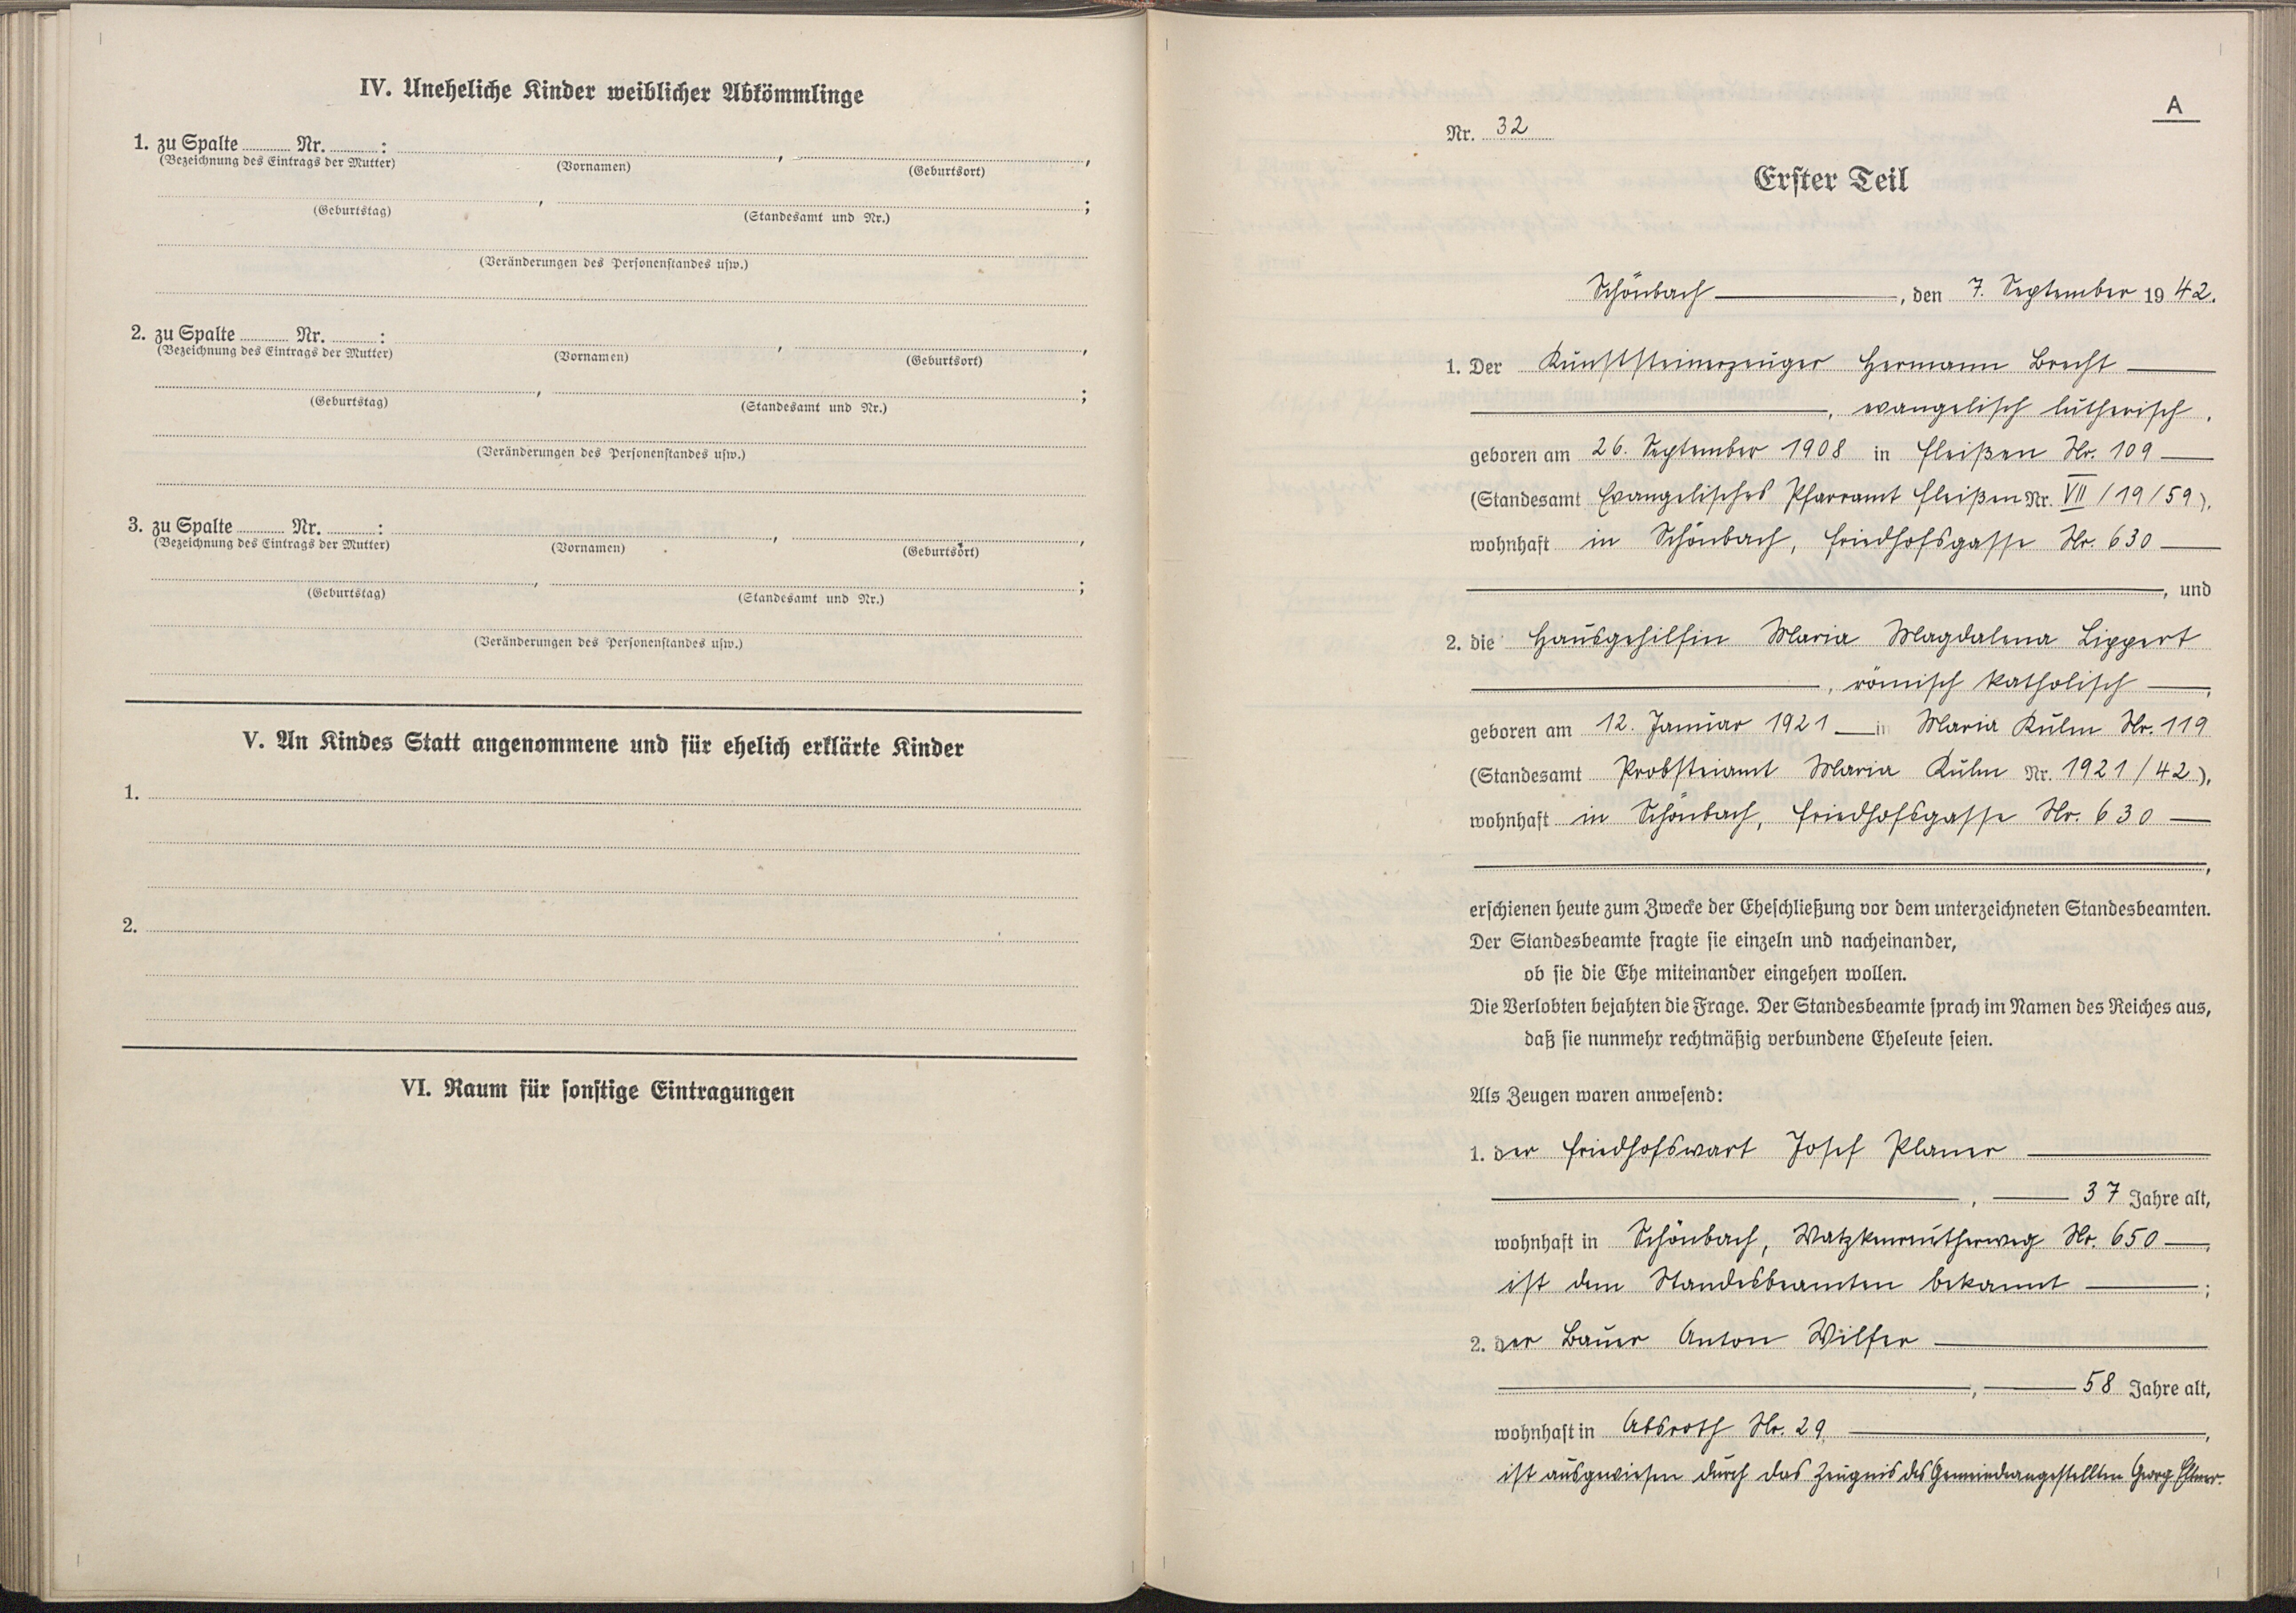 IV. Uneheliche Kinder weiblicher Abkömmlinge
1. zu Spalte ........ Nr. ........ : ........ , ........ ,
(Bezeichnung des Eintrags der Mutter) (Vornamen) (Geburtsort)
........ , ........ ;
(Geburtstag) (Standesamt und Nr.)
(Veränderungen des Personenstandes usw.)
2. zu Spalte ........ Nr. ........ : ........ , ........ ,
(Bezeichnung des Eintrags der Mutter) (Vornamen) (Geburtsort)
........ , ........ ;
(Geburtstag) (Standesamt und Nr.)
(Veränderungen des Personenstandes usw.)
3. zu Spalte ........ Nr. ........ : ........ , ........ ,
(Bezeichnung des Eintrags der Mutter) (Vornamen) (Geburtsort)
........ , ........ ;
(Geburtstag) (Standesamt und Nr.)
(Veränderungen des Personenstandes usw.)
V. An Kindes Statt angenommene und für ehelich erklärte Kinder
1.
2.
VI. Raum für sonstige Eintragungen
A
Nr. 32
Erster Teil
Schönbach, den 7. September 1942.
1. Der Kunststeinerzeuger Hermann Brecht
, evangelisch lutherisch,
geboren am 26. September 1908 in Fleißen Nr. 109
(Standesamt Evangelisches Pfarramt Fleißen Nr. VII/19/59),
wohnhaft in Schönbach, Friedhofsgasse Nr. 630
, und
2. die Hausgehilfin Maria Magdalena Lippert
, römisch katholisch,
geboren am 12. Januar 1921 in Maria Kulm Nr. 119
(Standesamt Probsteiamt Maria Kulm Nr. 1921/42),
wohnhaft in Schönbach, Friedhofsgasse Nr. 630
,
erschienen heute zum Zwecke der Eheschließung vor dem unterzeichneten Standesbeamten.
Der Standesbeamte fragte sie einzeln und nacheinander,
ob sie die Ehe miteinander eingehen wollen.
Die Verlobten bejahten die Frage. Der Standesbeamte sprach im Namen des Reiches aus,
daß sie nunmehr rechtmäßig verbundene Eheleute seien.
Als Zeugen waren anwesend:
1. der Friedhofswart Josef Planer
, 37 Jahre alt,
wohnhaft in Schönbach, Watzkenreutherweg Nr. 650,
ist dem Standesbeamten bekannt;
2. der Bauer Anton Wilfer
, 58 Jahre alt,
wohnhaft in Absroth Nr. 29,
ist ausgewiesen durch das Zeugnis des Gemeindeangestellten Georg